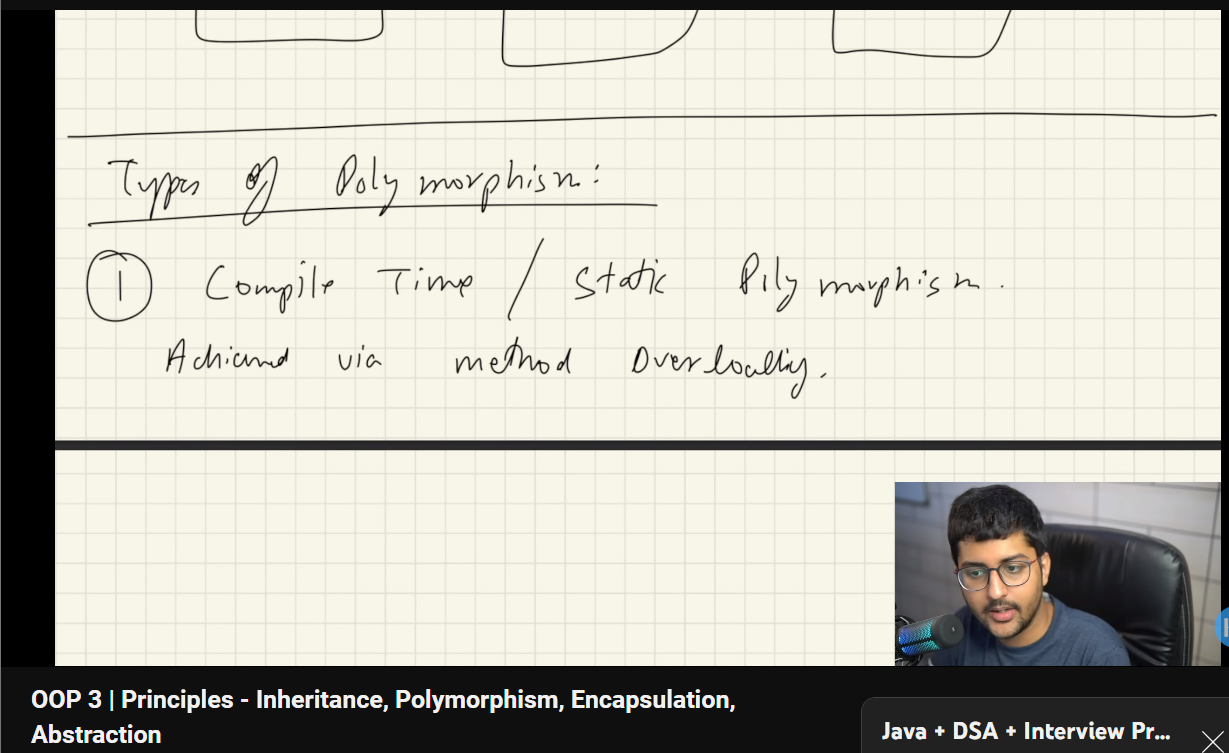 Types of Polymorphism:
1 Compile Time / Static Polymorphism.
Achieved via method Overloading.
OOP 3 | Principles - Inheritance, Polymorphism, Encapsulation,
Abstraction
Java + DSA + Interview Pr...